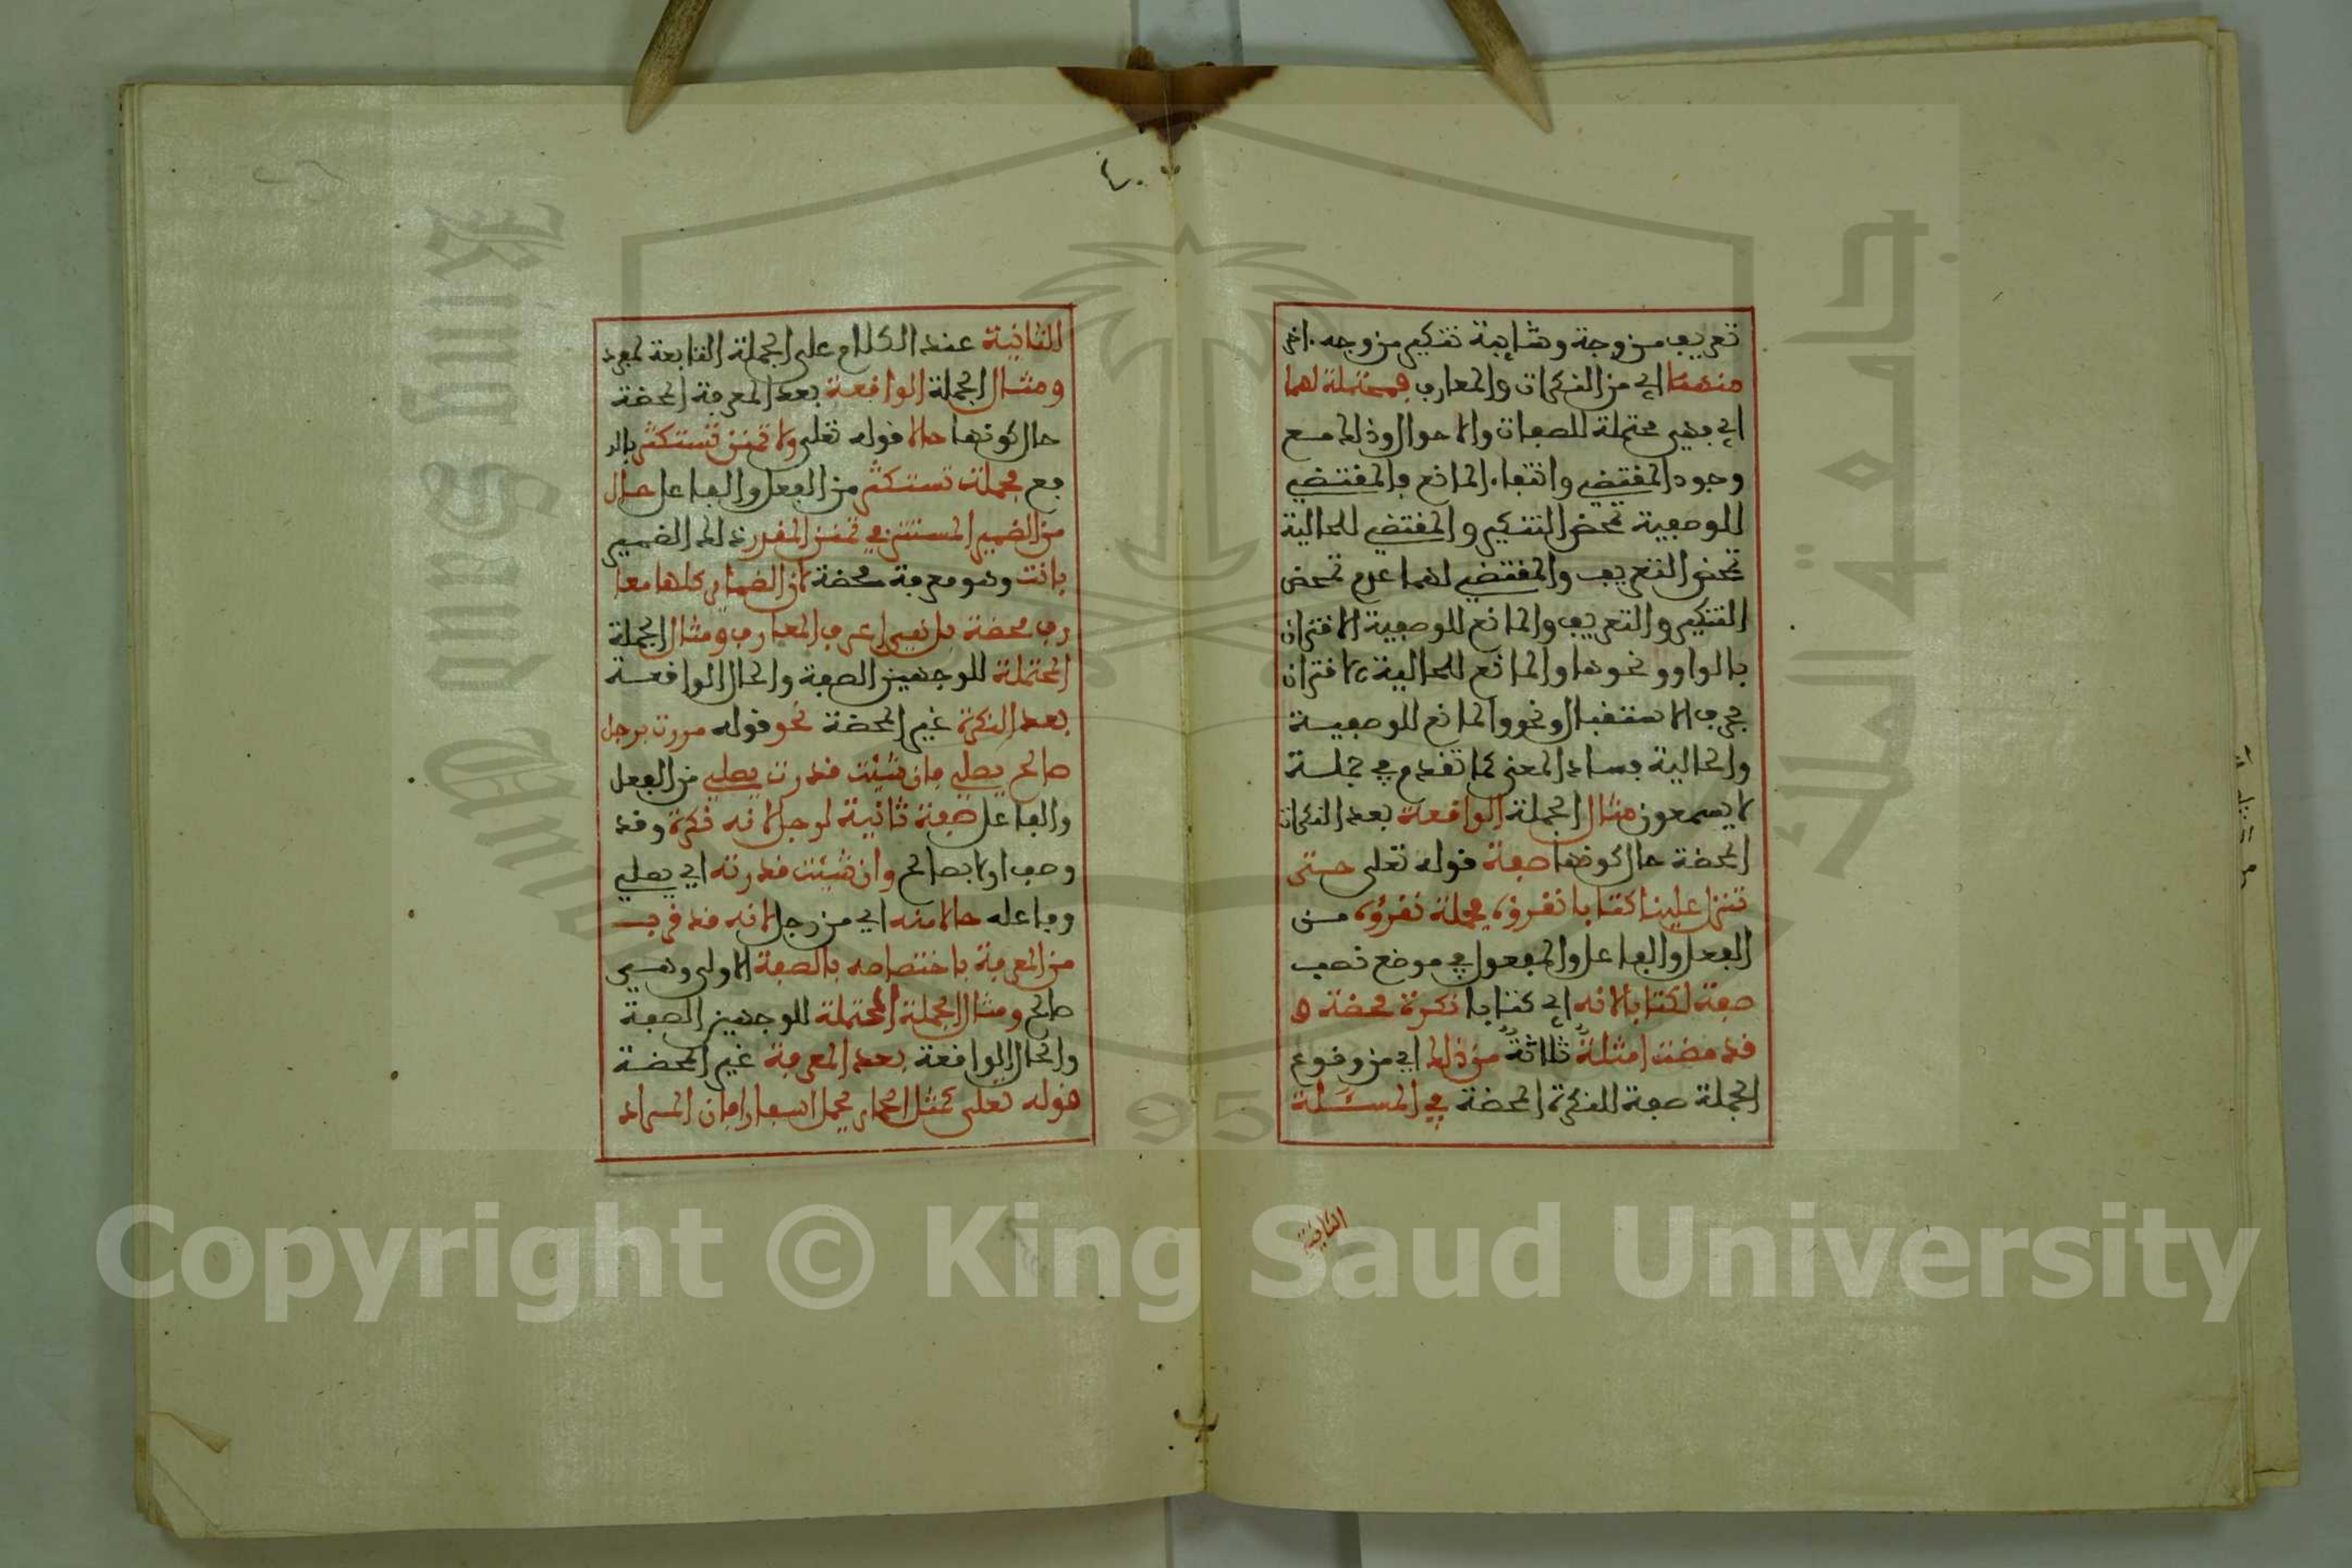 تعريف من وجه وشايبة تنكير من وجه اخر
منهما اي من النكرات والمعارف فمحتملة لهما
اي فهي محتملة للصفات والاحوال وذلك مع
وجود المقتضي وانتفاء المانع فالمقتضي
للوصفية تمحض التنكير والمقتضي للحالية
تمحض التعريف والمقتضي لهما عدم تمحض
التنكير والتعريف والمانع للوصفية الاقتران
بالواو ونحوها والمانع للحالية الاقتران
بحرف الاستقبال ونحوه والمانع للوصفية
والحالية فساد المعنى كما تقدم في جملة
لا يسمعون مثال الجملة الواقعة بعد النكرات
المحضة حال كونها صفة قوله تعلى حتى
تنزل علينا كتابا نقرؤه فجملة نقرؤه من
الفعل والفاعل والمفعول في موضع نصب
صفة لكتابا لانه اي كتابا نكرة محضة و
قد مضت امثلة ثلاثة من ذلك اي من وقوع
الجملة صفة للنكرة المحضة في المسئلة
الثانية
٤٠
الثانية عند الكلام على الجملة التابعة لمفرد
ومثال الجملة الواقعة بعد المعرفة المحضة
حال كونها حالا قوله تعلى ولا تمنن تستكثر بالر
فع فجملت تستكثر من الفعل والفاعل حال
من الضمير المستتر في تمنن المقدر ذلك الضمير
بانت وهو معرفة محضة لان الضماير كلها معا
رف محضة بل هي اعرف المعارف ومثال الجملة
المحتملة للوجهين الصفة والحال الواقعة
بعد النكرة غير المحضة نحو قوله مررت برجل
صالح يصلي فان شئت قدرت يصلي من الفعل
والفاعل صفة ثانية لرجل لانه نكرة وقد
وصف اولا بصالح وان شئت قدرته اي يصلي
وفاعله حالا منه اي من رجل لانه قد قرب
من المعرفة باختصاصه بالصفة الاولى وهي
صالح ومثال الجملة المحتملة للوجهين الصفة
والحال الواقعة بعد المعرفة غير المحضة
قوله تعلى كمثل الحمار يحمل اسفارا فان المراد
جامعة الملك سعود
King Saud University
1957
Copyright © King Saud University